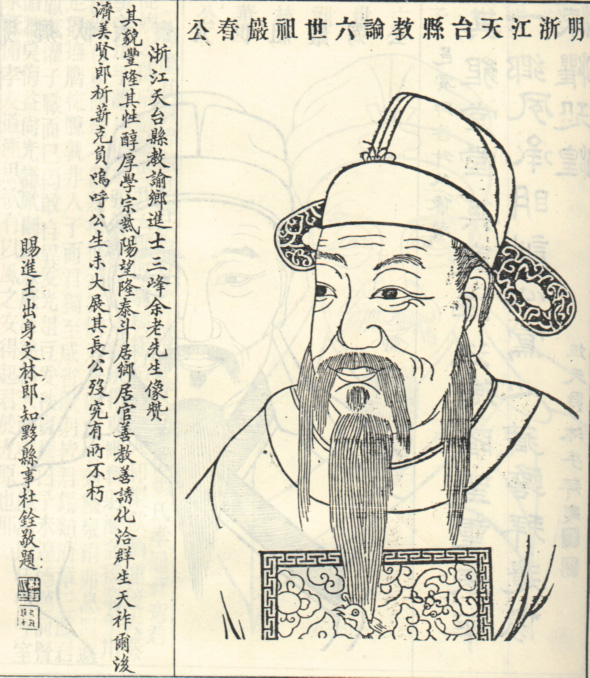 明浙江天台縣教諭六世祖嚴春公
浙江天台縣教諭鄉進士三峰余老先生像贊
其貌豐隆其性醇厚學宗紫陽望隆泰斗居鄉居官善教善誘化洽群生天祚爾後
濟美賢郎析薪克負嗚呼公生未大展其長公歿究有所不朽
賜進士出身文林郎知黟縣事杜銓敬題